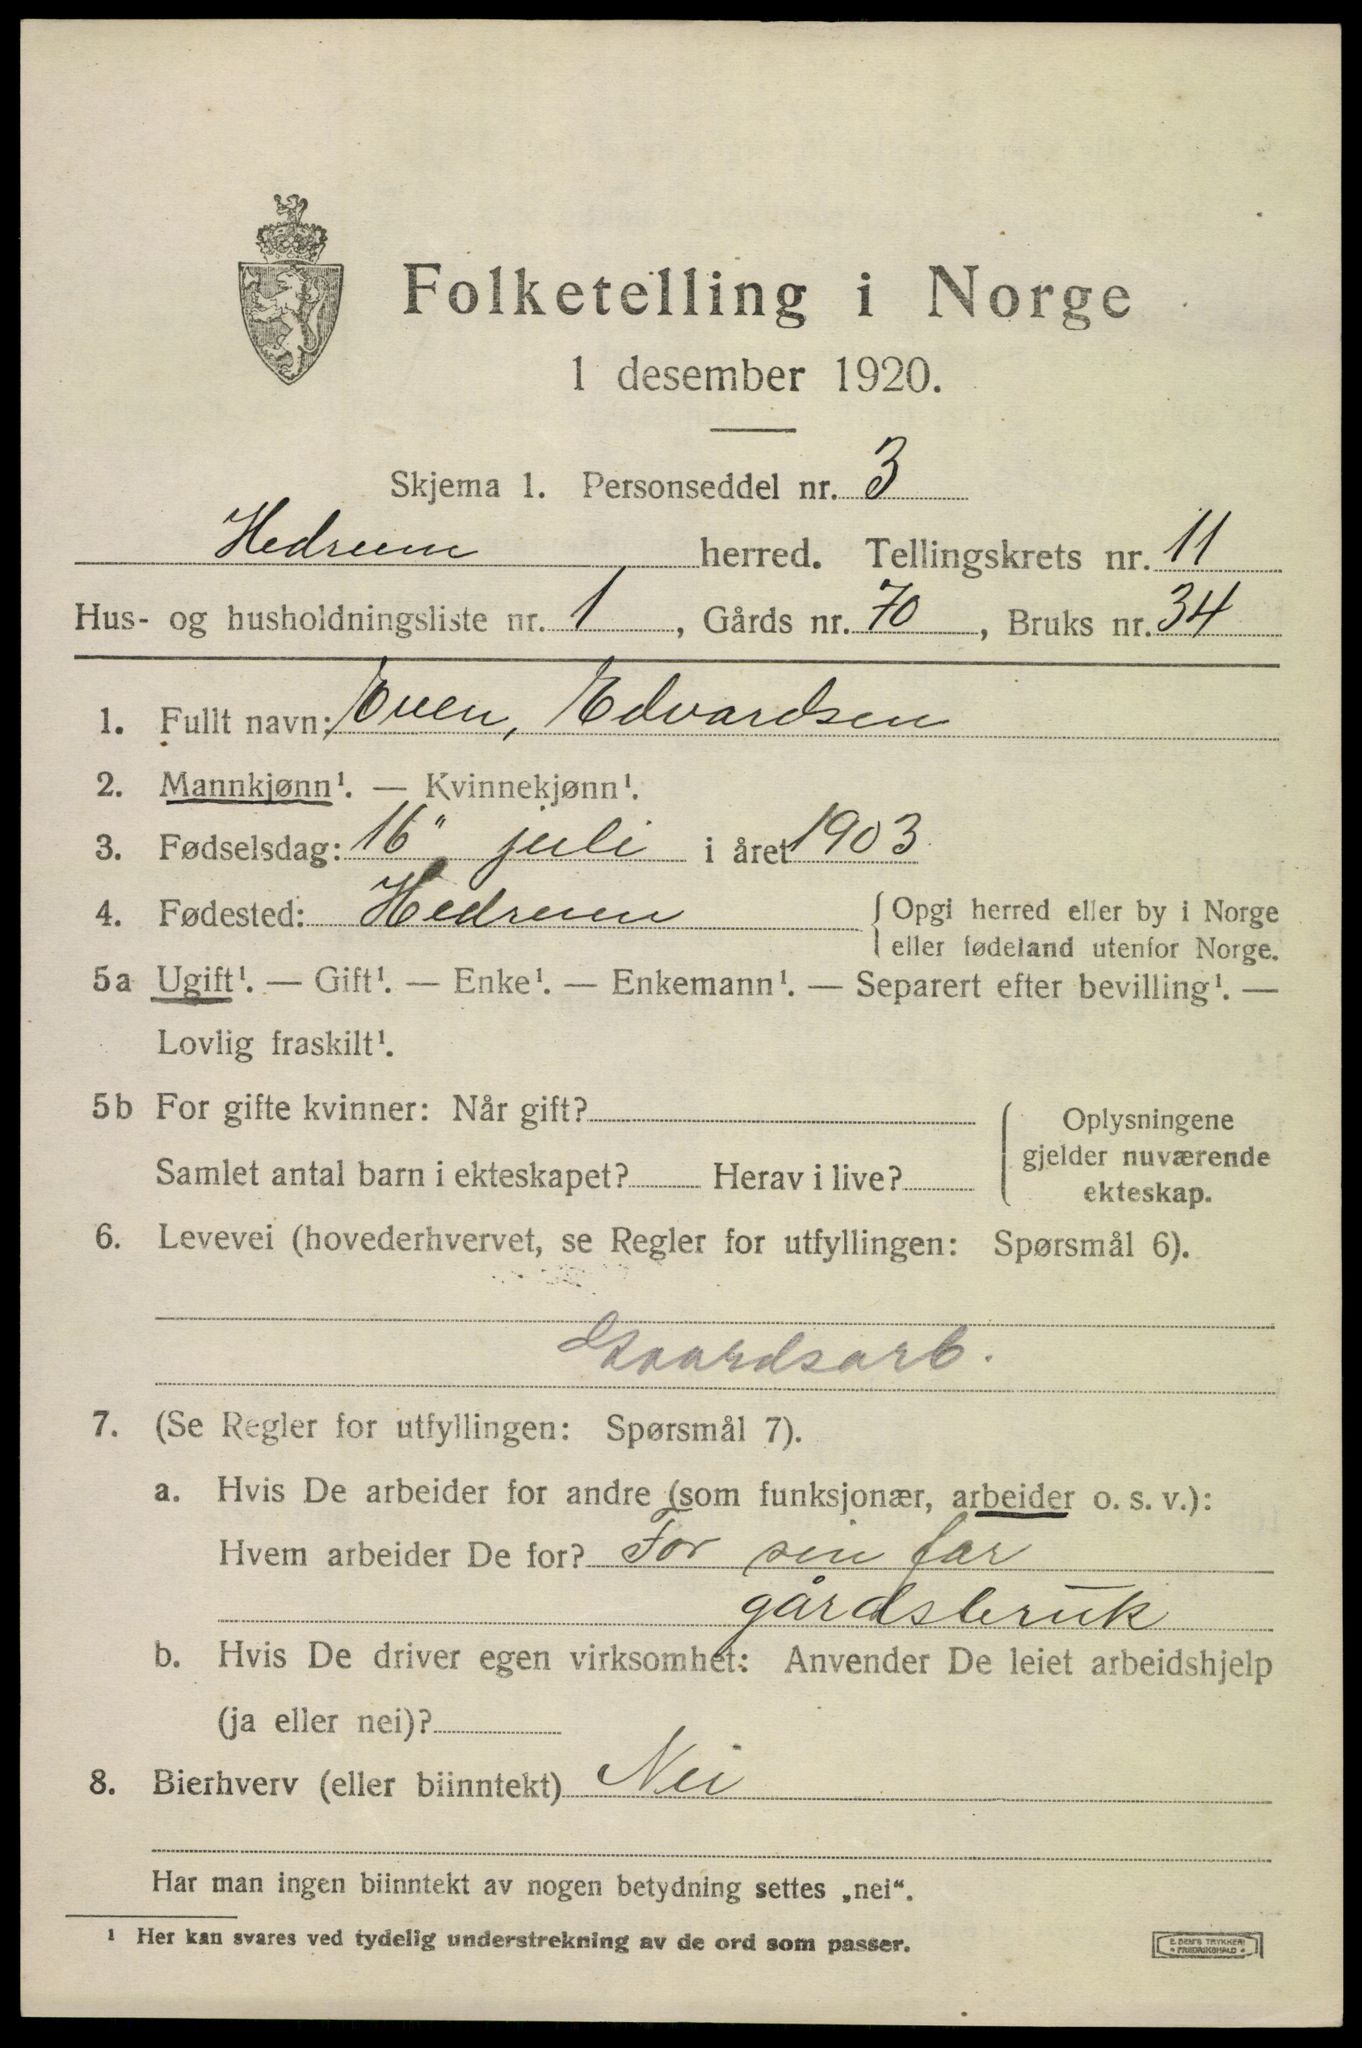 Folketelling i Norge
1 desember 1920.
Skjema 1. Personseddel nr. 3
Hedrum herred. Tellingskrets nr. 11
Hus- og husholdningsliste nr. 1, Gårds nr. 70, Bruks nr. 34
1. Fullt navn: Even, Edvardsen
2. Mannkjønn¹. — Kvinnekjønn¹.
3. Fødselsdag: 16" juli i året 1903
4. Fødested: Hedrum { Opgi herred eller by i Norge
eller fødeland utenfor Norge.
5a Ugift¹. — Gift¹. — Enke¹. — Enkemann¹. — Separert efter bevilling¹. —
Lovlig fraskilt¹.
5b For gifte kvinner: Når gift?
Samlet antal barn i ekteskapet? Herav i live?
Oplysningene
gjelder nuværende
ekteskap.
6. Levevei (hovederhvervet, se Regler for utfyllingen: Spørsmål 6).
Gaardsarb.
7. (Se Regler for utfyllingen: Spørsmål 7).
a. Hvis De arbeider for andre (som funksjonær, arbeider o. s. v.):
Hvem arbeider De for? For sin far
gårdsbruk
b. Hvis De driver egen virksomhet: Anvender De leiet arbeidshjelp
(ja eller nei)?
8. Bierhverv (eller biinntekt) Nei
Har man ingen biinntekt av nogen betydning settes „nei“.
¹ Her kan svares ved tydelig understrekning av de ord som passer.
E. SEM'S TRYKKERI
• FREDRIKSHALD •